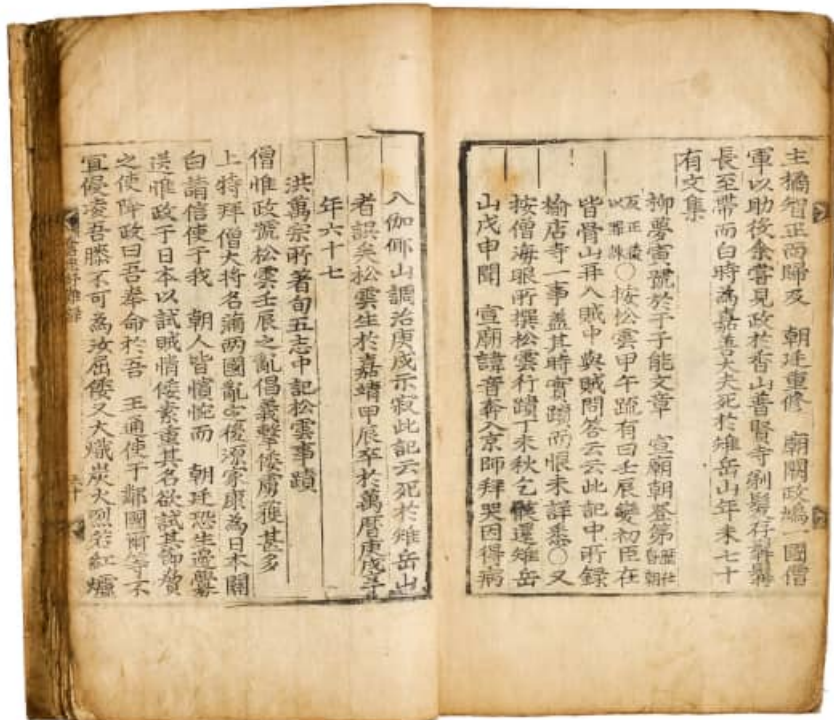 主橘智正而歸及 朝廷重修 廟闕政編一國僧
軍以助役余嘗見政於香山普賢寺剃髮存髥髥
長至帶而白時為嘉善大夫死於雉岳山年未七十
有文集
柳夢寅號於于子能文章 宣廟朝登第歷仕昏朝
反正後以罪誅○按松雲甲午疏有曰壬辰變初臣在
皆骨山再入賊中與賊問答云云此記中所錄
榆店寺一事盖其時實蹟而恨未詳悉○又
按僧海眼所撰松雲行蹟丁未秋乞骸還雉岳
山戊申聞 宣廟諱音奔入京師拜哭因得病
入伽倻山調治庚戌示寂此記云死於雉岳山
者誤矣松雲生於嘉靖甲辰卒於萬曆庚戌享
年六十七
洪萬宗所著旬五志中記松雲事蹟
僧惟政號松雲壬辰之亂倡義擊倭虜獲甚多
上特拜僧大將名滿兩國亂定後源家康為日本關
白請信使于我 朝人皆憤惋而 朝廷恐生邊釁
送惟政于日本以試賊情倭素重其名欲試其節脅
之使降政曰吾奉命於吾 王通使于鄰國爾等不
宜侵凌吾膝不可為汝屈倭又大熾炭火烈若紅爐
忠紓難錄